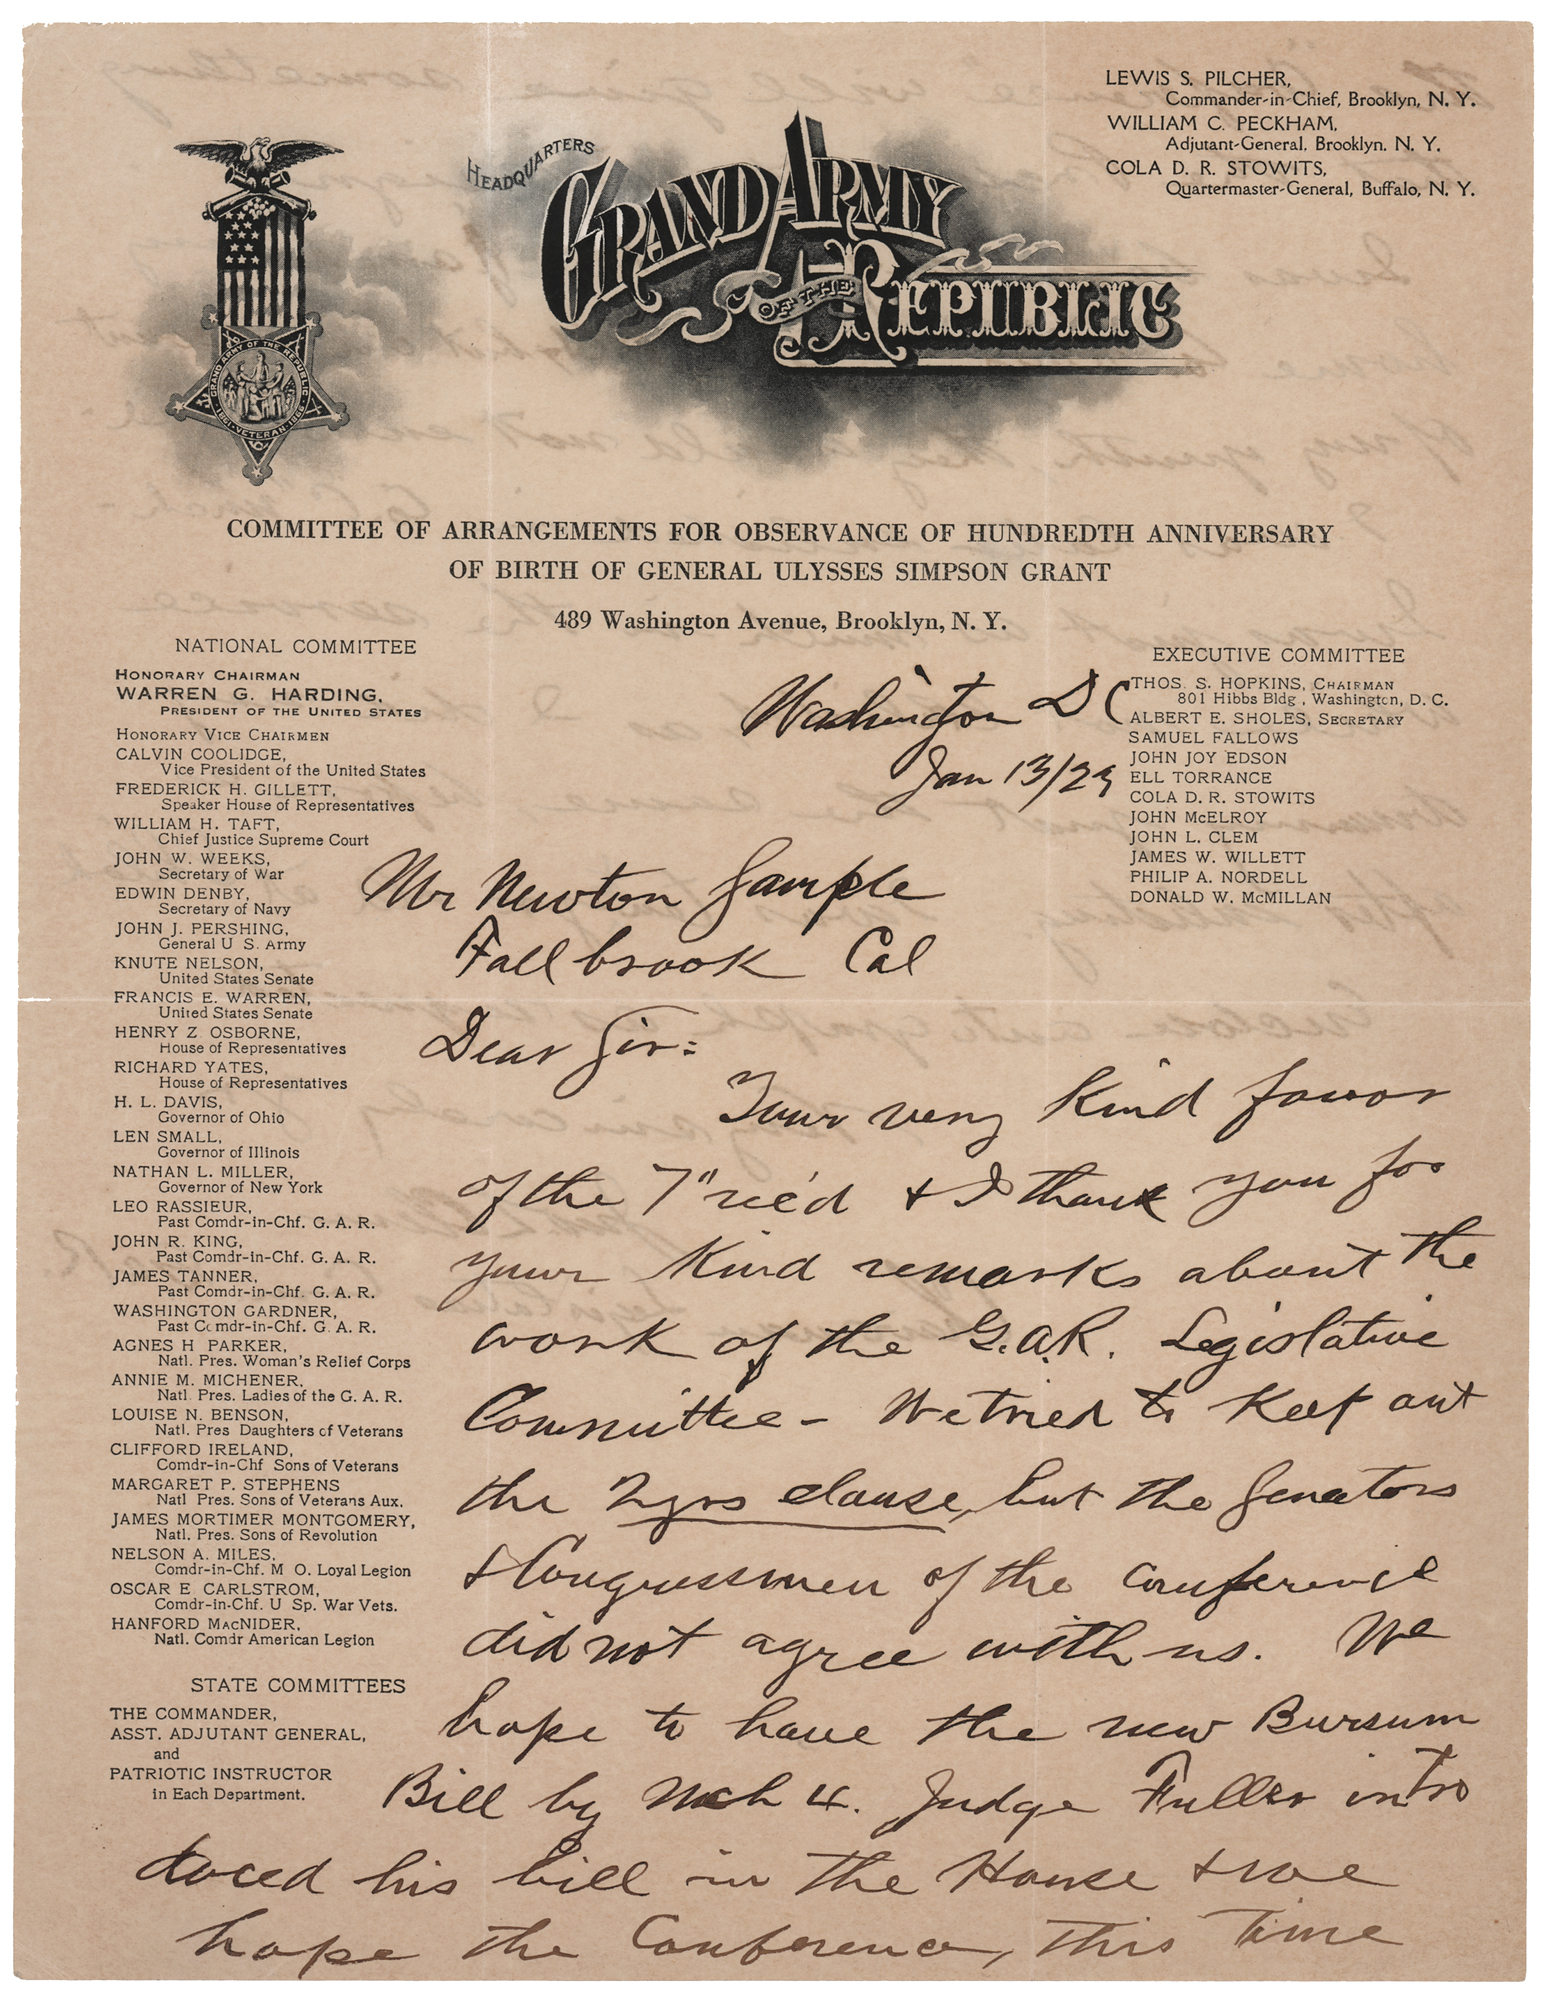 LEWIS S. PILCHER,
Commander-in-Chief, Brooklyn, N. Y.
WILLIAM C. PECKHAM,
Adjutant-General, Brooklyn. N. Y.
COLA D. R. STOWITS,
Quartermaster-General, Buffalo, N. Y.
HEADQUARTERS
GRAND ARMY
OF THE
REPUBLIC
GRAND ARMY OF THE REPUBLIC
1861 · VETERAN · 1866
COMMITTEE OF ARRANGEMENTS FOR OBSERVANCE OF HUNDREDTH ANNIVERSARY
OF BIRTH OF GENERAL ULYSSES SIMPSON GRANT
489 Washington Avenue, Brooklyn, N. Y.
NATIONAL COMMITTEE
HONORARY CHAIRMAN
WARREN G. HARDING,
PRESIDENT OF THE UNITED STATES
HONORARY VICE CHAIRMEN
CALVIN COOLIDGE,
Vice President of the United States
FREDERICK H. GILLETT,
Speaker House of Representatives
WILLIAM H. TAFT,
Chief Justice Supreme Court
JOHN W. WEEKS,
Secretary of War
EDWIN DENBY,
Secretary of Navy
JOHN J. PERSHING,
General U S. Army
KNUTE NELSON,
United States Senate
FRANCIS E. WARREN,
United States Senate
HENRY Z. OSBORNE,
House of Representatives
RICHARD YATES,
House of Representatives
H. L. DAVIS,
Governor of Ohio
LEN SMALL,
Governor of Illinois
NATHAN L. MILLER,
Governor of New York
LEO RASSIEUR,
Past Comdr-in-Chf. G. A. R.
JOHN R. KING,
Past Comdr-in-Chf. G. A. R.
JAMES TANNER,
Past Comdr-in-Chf. G. A. R.
WASHINGTON GARDNER,
Past Comdr-in-Chf. G. A. R.
AGNES H PARKER,
Natl. Pres. Woman's Relief Corps
ANNIE M. MICHENER,
Natl. Pres. Ladies of the G. A. R.
LOUISE N. BENSON,
Natl. Pres Daughters of Veterans
CLIFFORD IRELAND,
Comdr-in-Chf Sons of Veterans
MARGARET P. STEPHENS
Natl Pres. Sons of Veterans Aux.
JAMES MORTIMER MONTGOMERY,
Natl. Pres. Sons of Revolution
NELSON A. MILES,
Comdr-in-Chf. M O. Loyal Legion
OSCAR E. CARLSTROM,
Comdr-in-Chf. U Sp. War Vets.
HANFORD MACNIDER,
Natl. Comdr American Legion
STATE COMMITTEES
THE COMMANDER,
ASST. ADJUTANT GENERAL,
and
PATRIOTIC INSTRUCTOR
in Each Department.
EXECUTIVE COMMITTEE
THOS. S. HOPKINS, CHAIRMAN
801 Hibbs Bldg, Washington, D. C.
ALBERT E. SHOLES, SECRETARY
SAMUEL FALLOWS
JOHN JOY EDSON
ELL TORRANCE
COLA D. R. STOWITS
JOHN McELROY
JOHN L. CLEM
JAMES W. WILLETT
PHILIP A. NORDELL
DONALD W. McMILLAN
Washington D C
Jan 13/23
Mr Newton Sample
Fallbrook Cal
Dear Sir:
Your very kind favor
of the 7" rec'd & I thank you for
your kind remarks about the
work of the G.A.R. Legislative
Committee - We tried to keep out
the 2 yrs clause, but the Senators
& Congressmen of the conference
did not agree with us. We
hope to have the new Bursum
Bill by Mch 4. Judge Fuller intro
duced his bill in the House & we
hope the Conference, this time